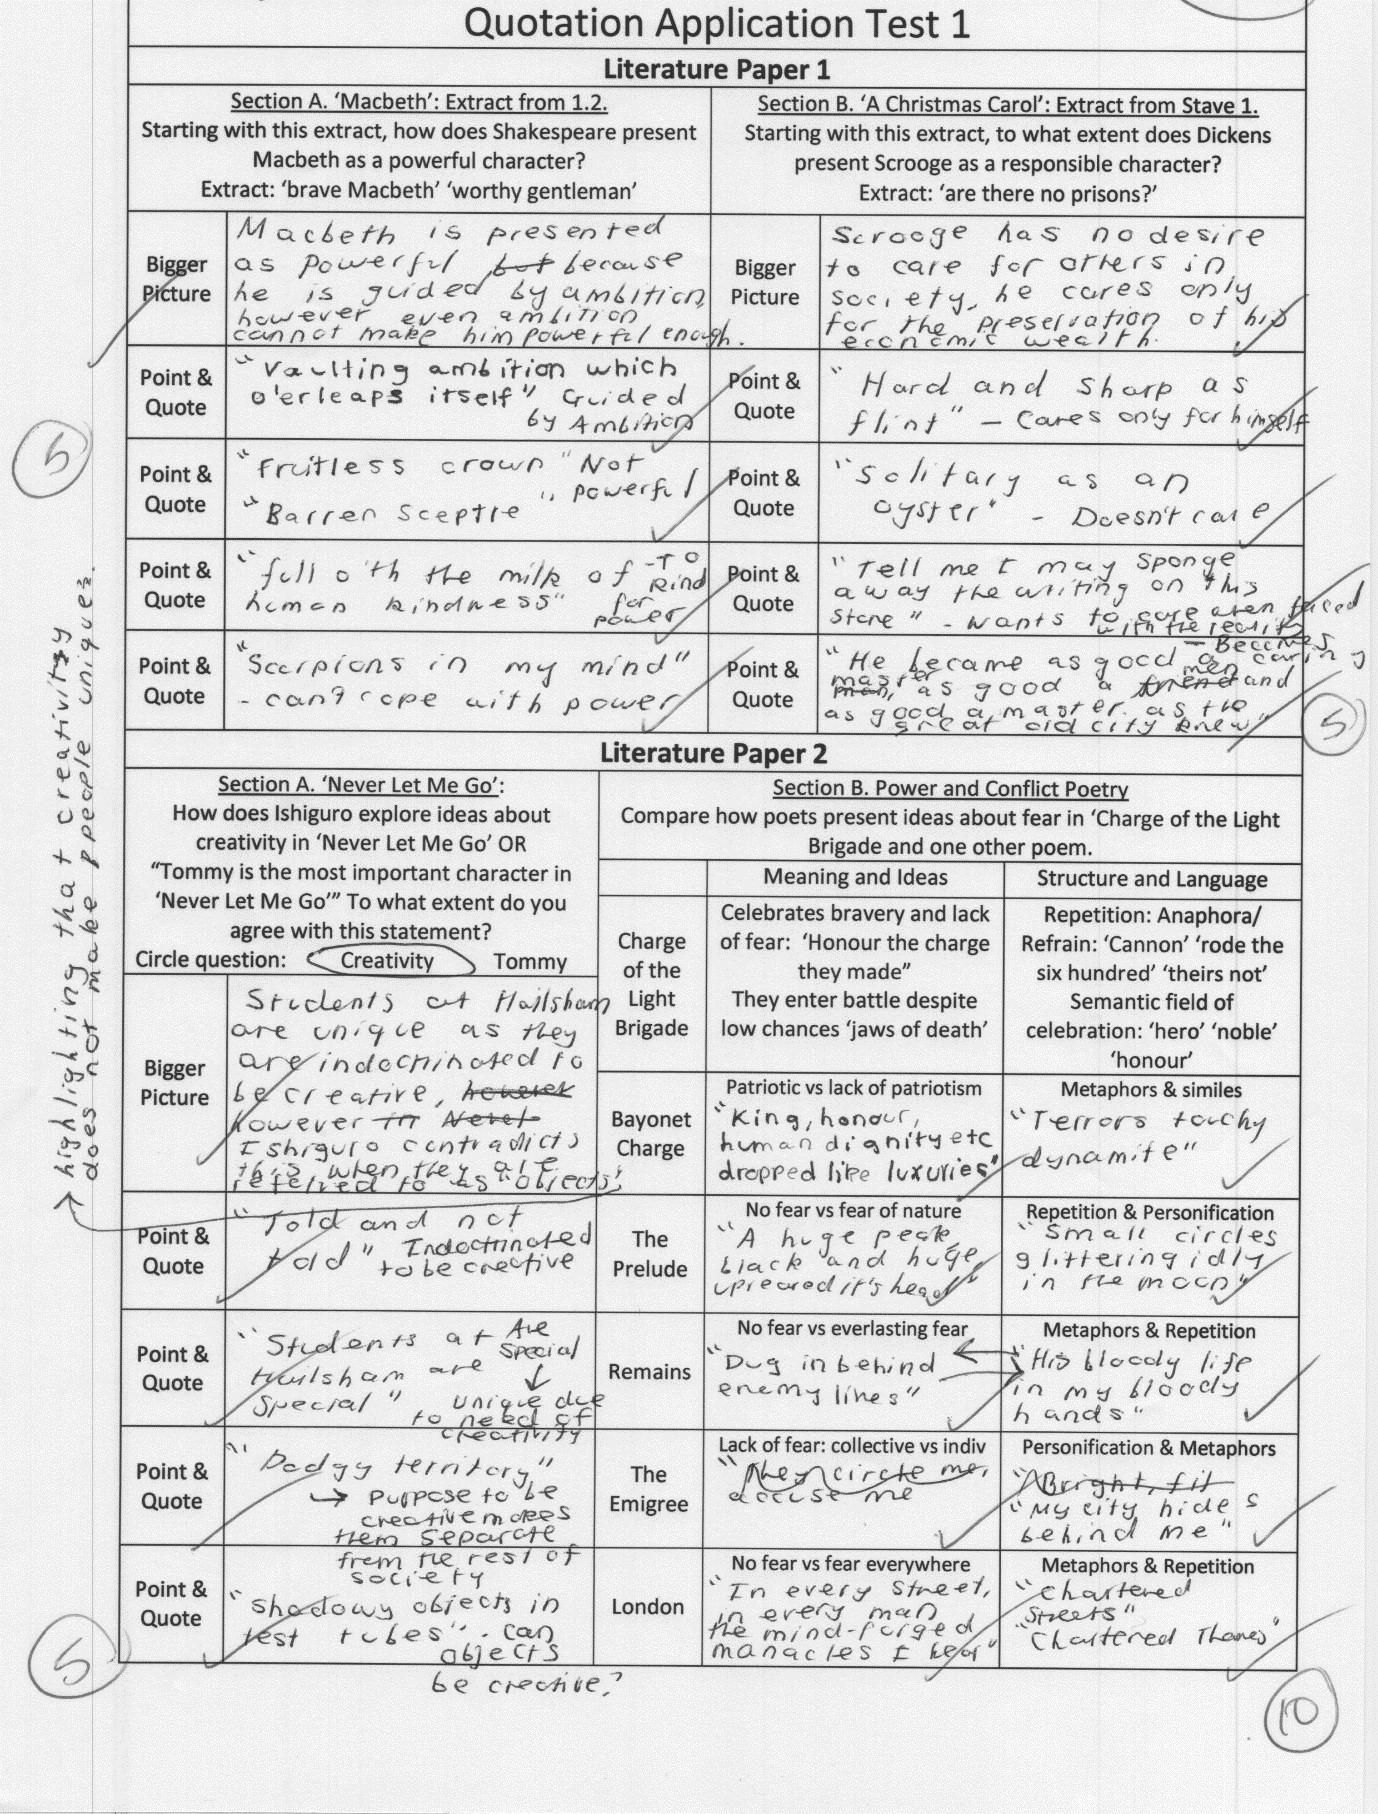 Quotation Application Test 1
Literature Paper 1
Section A. ‘Macbeth’: Extract from 1.2.
Starting with this extract, how does Shakespeare present
Macbeth as a powerful character?
Extract: ‘brave Macbeth’ ‘worthy gentleman’
Section B. ‘A Christmas Carol’: Extract from Stave 1.
Starting with this extract, to what extent does Dickens
present Scrooge as a responsible character?
Extract: ‘are there no prisons?’
Bigger
Picture
Macbeth is presented
as powerful but because
he is guided by ambition,
however even ambition
cannot make him powerful enough.
Bigger
Picture
Scrooge has no desire
to care for others in
society, he cares only
for the preservation of his
economic wealth.
Point &
Quote
"Vaulting ambition which
o'erleaps itself" Guided
by Ambition
Point &
Quote
"Hard and sharp as
flint" - Cares only for himself
Point &
Quote
"Fruitless crown" Not
powerful
"Barren Sceptre"
Point &
Quote
"Solitary as an
oyster" - Doesn't care
Point &
Quote
"full o'th the milk of
human kindness"
-To
kind
for
power
Point &
Quote
"Tell me I may sponge
away the writing on this
stone" - Wants to care when faced
with the reality
Point &
Quote
"Scorpions in my mind"
- can't cope with power
Point &
Quote
- Becomes
caring
"He became as good a
master man, as good a friend men and
as good a master as the
great old city knew"
5
5
Literature Paper 2
Section A. ‘Never Let Me Go’:
How does Ishiguro explore ideas about
creativity in ‘Never Let Me Go’ OR
“Tommy is the most important character in
‘Never Let Me Go’” To what extent do you
agree with this statement?
Circle question: Creativity Tommy
Bigger
Picture
Students at Hailsham
are unique as they
are indoctrinated to
be creative, however
however in Never
Ishiguro contradicts
this when they are
referred to as 'objects'
highlighting that creativity
does not make people unique.
Point &
Quote
"Told and not
told" Indoctrinated
to be creative
Point &
Quote
"Students at
Hailsham are
special"
Are
special
unique due
to need of
creativity
Point &
Quote
"Dodgy territory"
→ purpose to be
creative makes
them separate
from the rest of
society
Point &
Quote
"Shadowy objects in
test tubes" - can
objects
be creative?
5
Section B. Power and Conflict Poetry
Compare how poets present ideas about fear in ‘Charge of the Light
Brigade and one other poem.
Meaning and Ideas
Structure and Language
Charge
of the
Light
Brigade
Celebrates bravery and lack
of fear: ‘Honour the charge
they made”
They enter battle despite
low chances ‘jaws of death’
Repetition: Anaphora/
Refrain: ‘Cannon’ ‘rode the
six hundred’ ‘theirs not’
Semantic field of
celebration: ‘hero’ ‘noble’
‘honour’
Bayonet
Charge
Patriotic vs lack of patriotism
"King, honour,
human dignity etc
dropped like luxuries"
Metaphors & similes
"Terrors touchy
dynamite"
The
Prelude
No fear vs fear of nature
"A huge peak,
black and huge,
upreared it's head"
Repetition & Personification
"Small circles
glittering idly
in the moon"
Remains
No fear vs everlasting fear
"Dug in behind
enemy lines"
Metaphors & Repetition
"His bloody life
in my bloody
hands"
The
Emigree
Lack of fear: collective vs indiv
"They circle me,
accuse me
Personification & Metaphors
"Bright, fit
"My city hides
behind me"
London
No fear vs fear everywhere
"In every street,
in every man
the mind-forged
manacles I hear"
Metaphors & Repetition
"Chartered
Streets"
"Chartered Thames"
10